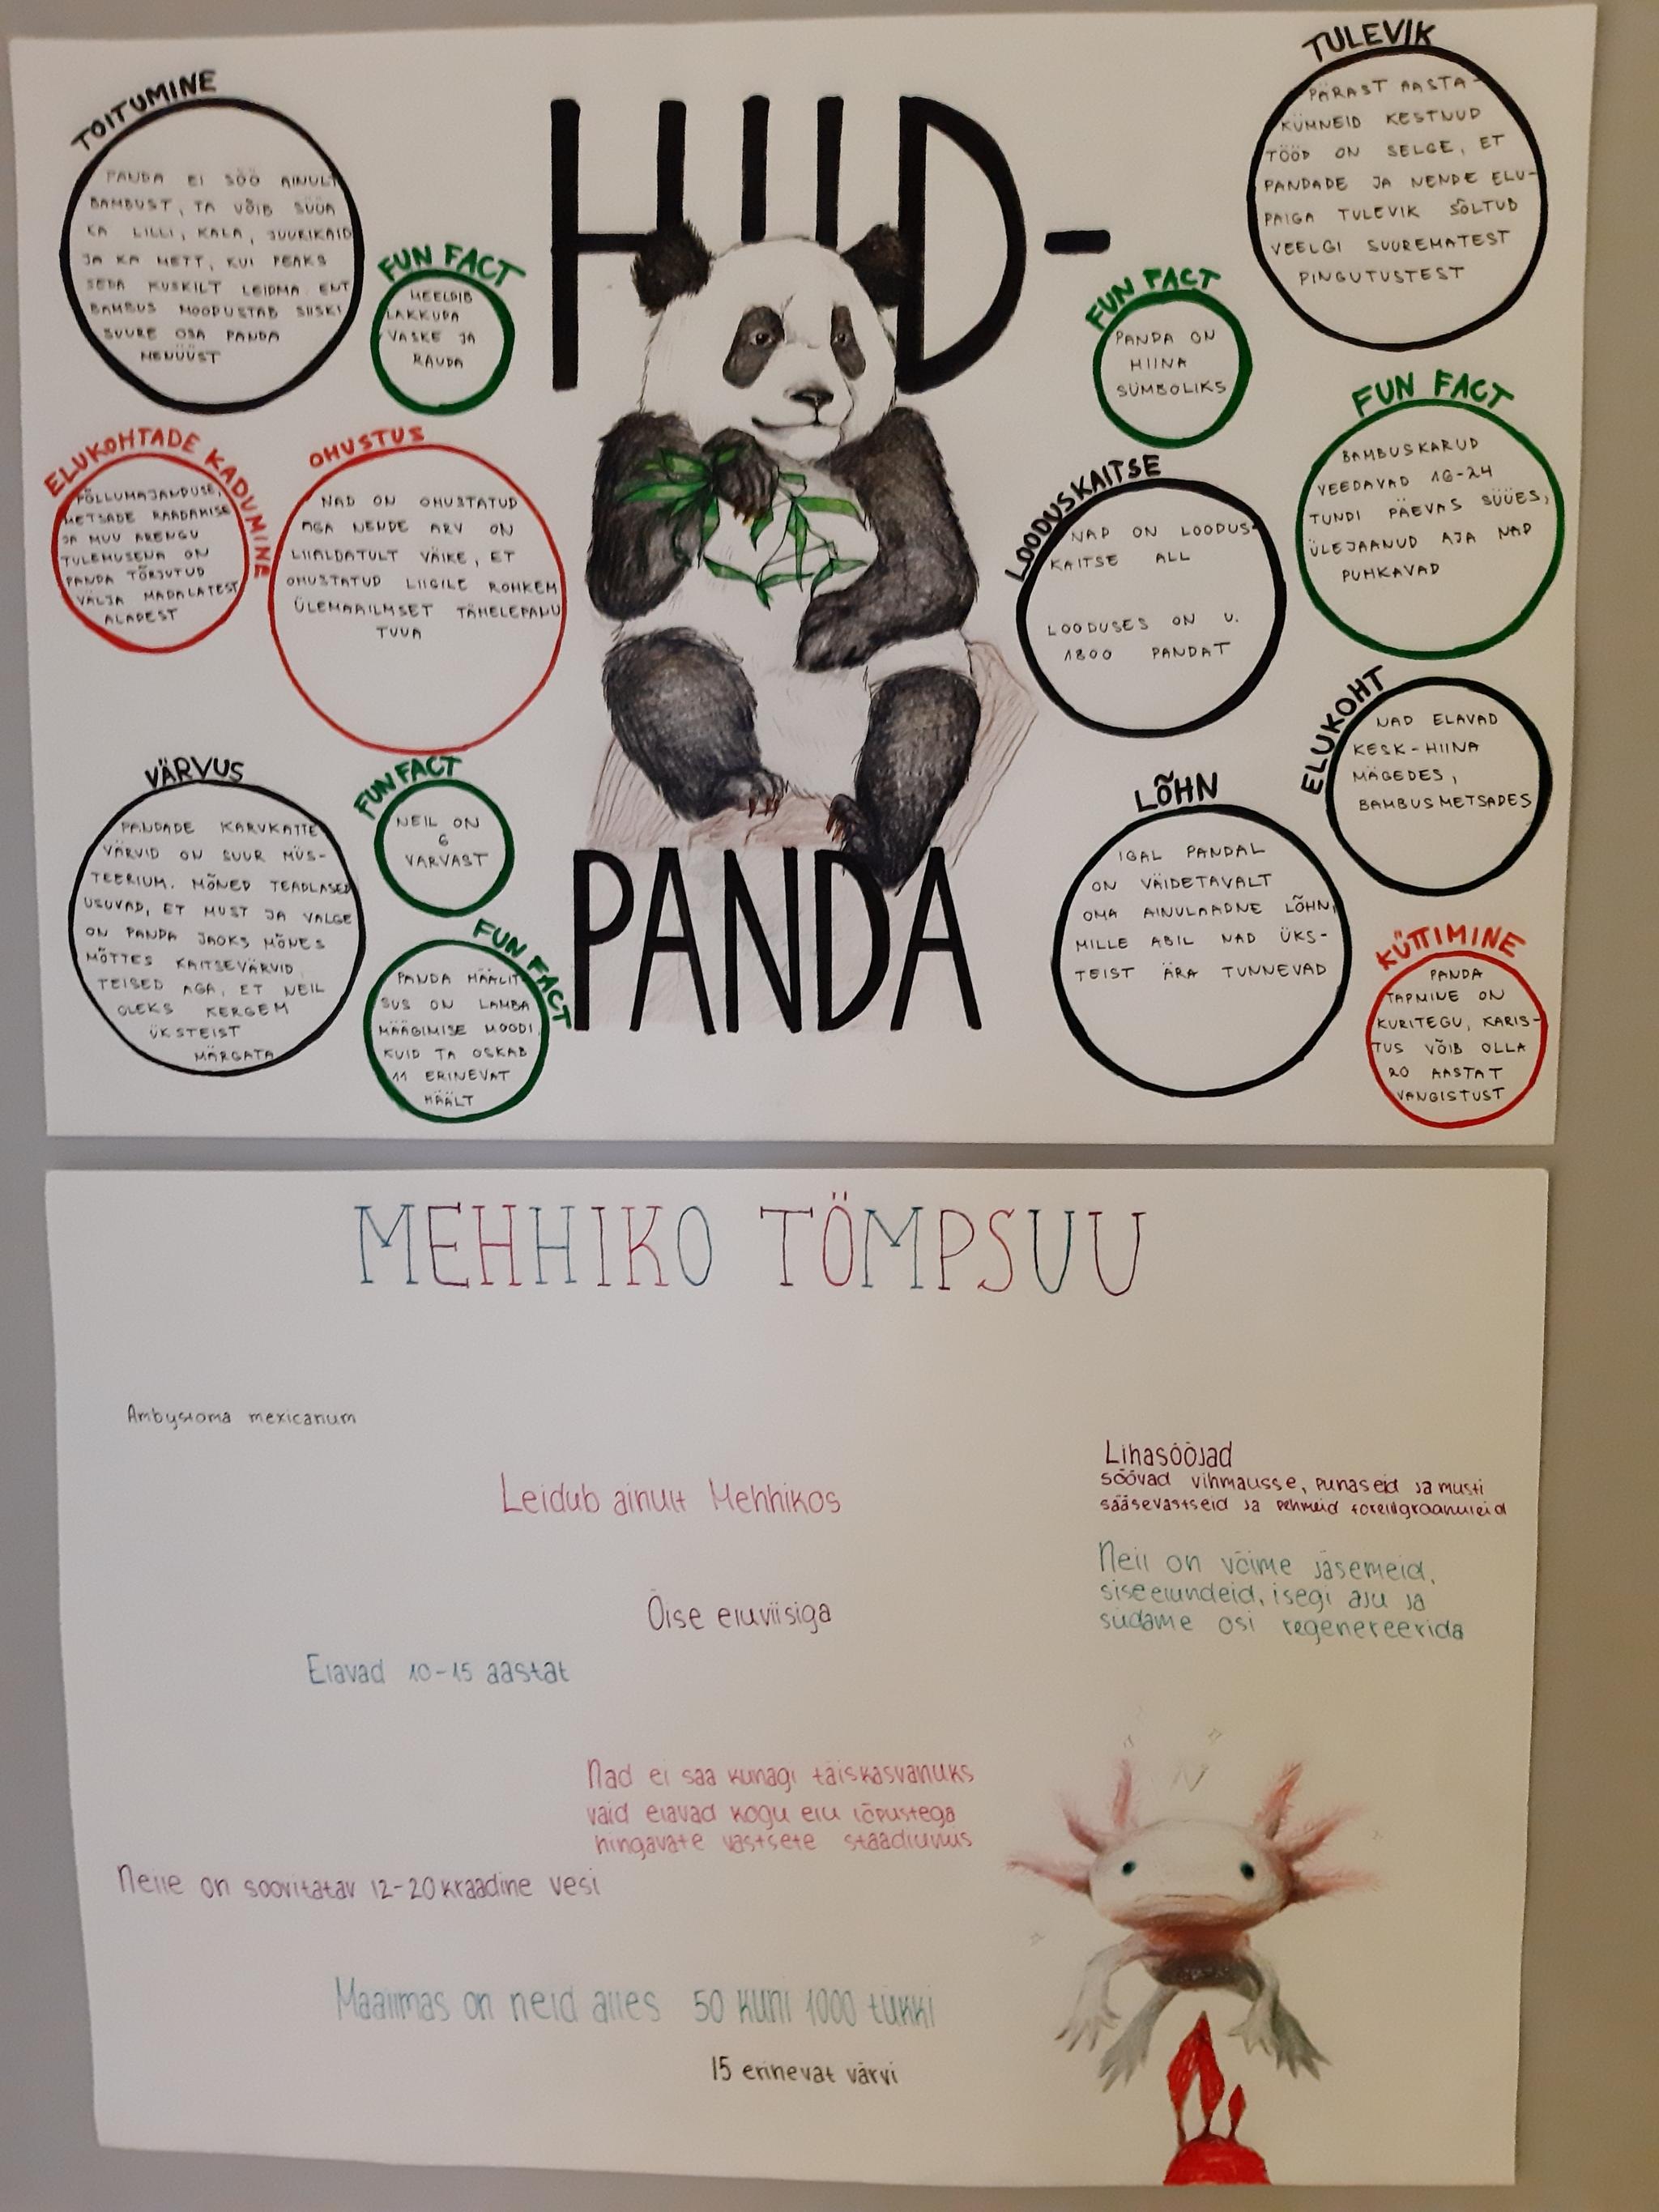 HIID-
PANDA
TOITUMINE
PANDA EI SÖÖ AINULT
BAMBUST, TA VÕIB SÜÜA
KA LILLI, KALA, JUURIKAID
JA KA METT, KUI PEAKS
SEDA KUSKILT LEIDMA ENT
BAMBUS MOODUSTAB SIISKI
SUURE OSA PANDA
MENÜÜST
FUN FACT
MEELDIB
LAKKUDA
VASKE JA
RAUDA
ELUKOHTADE KADUMINE
PÕLLUMAJANDUSE,
METSADE RAADAMISE
JA MUU ARENGU
TULEMUSENA ON
PANDA TÕRJUTUD
VÄLJA MADALATEST
ALADEST
OHUSTUS
NAD ON OHUSTATUD
AGA NENDE ARV ON
LIIALDATULT VÄIKE, ET
OHUSTATUD LIIGILE ROHKEM
ÜLEMAAILMSET TÄHELEPANU
TUUA
VÄRVUS
PANDADE KARVKATTE
VÄRVID ON SUUR MÜS-
TEERIUM. MÕNED TEADLASED
USUVAD, ET MUST JA VALGE
ON PANDA JAOKS MÕNES
MÕTTES KAITSEVÄRVID
TEISED AGA, ET NEIL
OLEKS KERGEM
ÜKSTEIST
MÄRGATA
FUN FACT
NEIL ON
6
VARVAST
FUN FACT
PANDA HÄÄLIT-
SUS ON LAMBA
MÄÄGIMISE MOODI,
KUID TA OSKAB
11 ERINEVAT
HÄÄLT
TULEVIK
PÄRAST AASTA-
KÜMNEID KESTNUD
TÖÖD ON SELGE, ET
PANDADE JA NENDE ELU-
PAIGA TULEVIK SÕLTUB
VEELGI SUUREMATEST
PINGUTUSTEST
FUN FACT
PANDA ON
HIINA
SÜMBOLIKS
FUN FACT
BAMBUSKARUD
VEEDAVAD 16-24
TUNDI PÄEVAS SÜÜES,
ÜLEJAANUD AJA NAD
PUHKAVAD
LOODUSKAITSE
NAD ON LOODUS-
KAITSE ALL
LOODUSES ON U.
1800 PANDAT
ELUKOHT
NAD ELAVAD
KESK-HIINA
MÄGEDES,
BAMBUSMETSADES
LÕHN
IGAL PANDAL
ON VÄIDETAVALT
OMA AINULAADNE LÕHN,
MILLE ABIL NAD ÜKS-
TEIST ÄRA TUNNEVAD
KÜTTIMINE
PANDA
TAPMINE ON
KURITEGU, KARIS-
TUS VÕIB OLLA
20 AASTAT
VANGISTUST
MEHHIKO TÖMPSUU
Ambystoma mexicanum
Leidub ainult Mehhikos
Lihasööjad
söövad vihmausse, punaseid ja musti
sääsevastseid ja pehmeid forelligraanuleid
Neil on võime jäsemeid,
siseelundeid, isegi aju ja
südame osi regenereerida
Öise eluviisiga
Elavad 10-15 aastat
Nad ei saa kunagi täiskasvanuks
vaid elavad kogu elu lõpustega
hingavate vastsete staadiumis
Neile on soovitatav 12-20 kraadine vesi
Maailmas on neid alles 50 kuni 1000 tükki
15 erinevat värvi